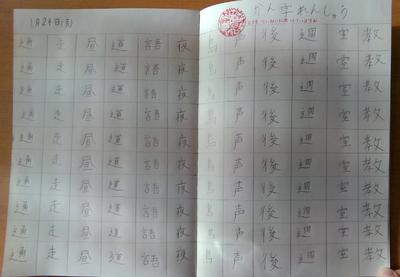 1月24日(月)
通 走 昼 道 語 夜
通 走 昼 道 語 夜
通 走 昼 道 語 夜
通 走 昼 道 語 夜
通 走 昼 道 語 夜
通 走 昼 道 語 夜
通 走 昼 道 語 夜
通 走 昼 道 語 夜
通 走 昼 道 語 夜
通 走 昼 道 語 夜
かん字れんしゅう
鳥 声 後 週 室 教
鳥 声 後 週 室 教
鳥 声 後 週 室 教
鳥 声 後 週 室 教
鳥 声 後 週 室 教
鳥 声 後 週 室 教
鳥 声 後 週 室 教
鳥 声 後 週 室 教
鳥 声 後 週 室 教
鳥 声 後 週 室 教